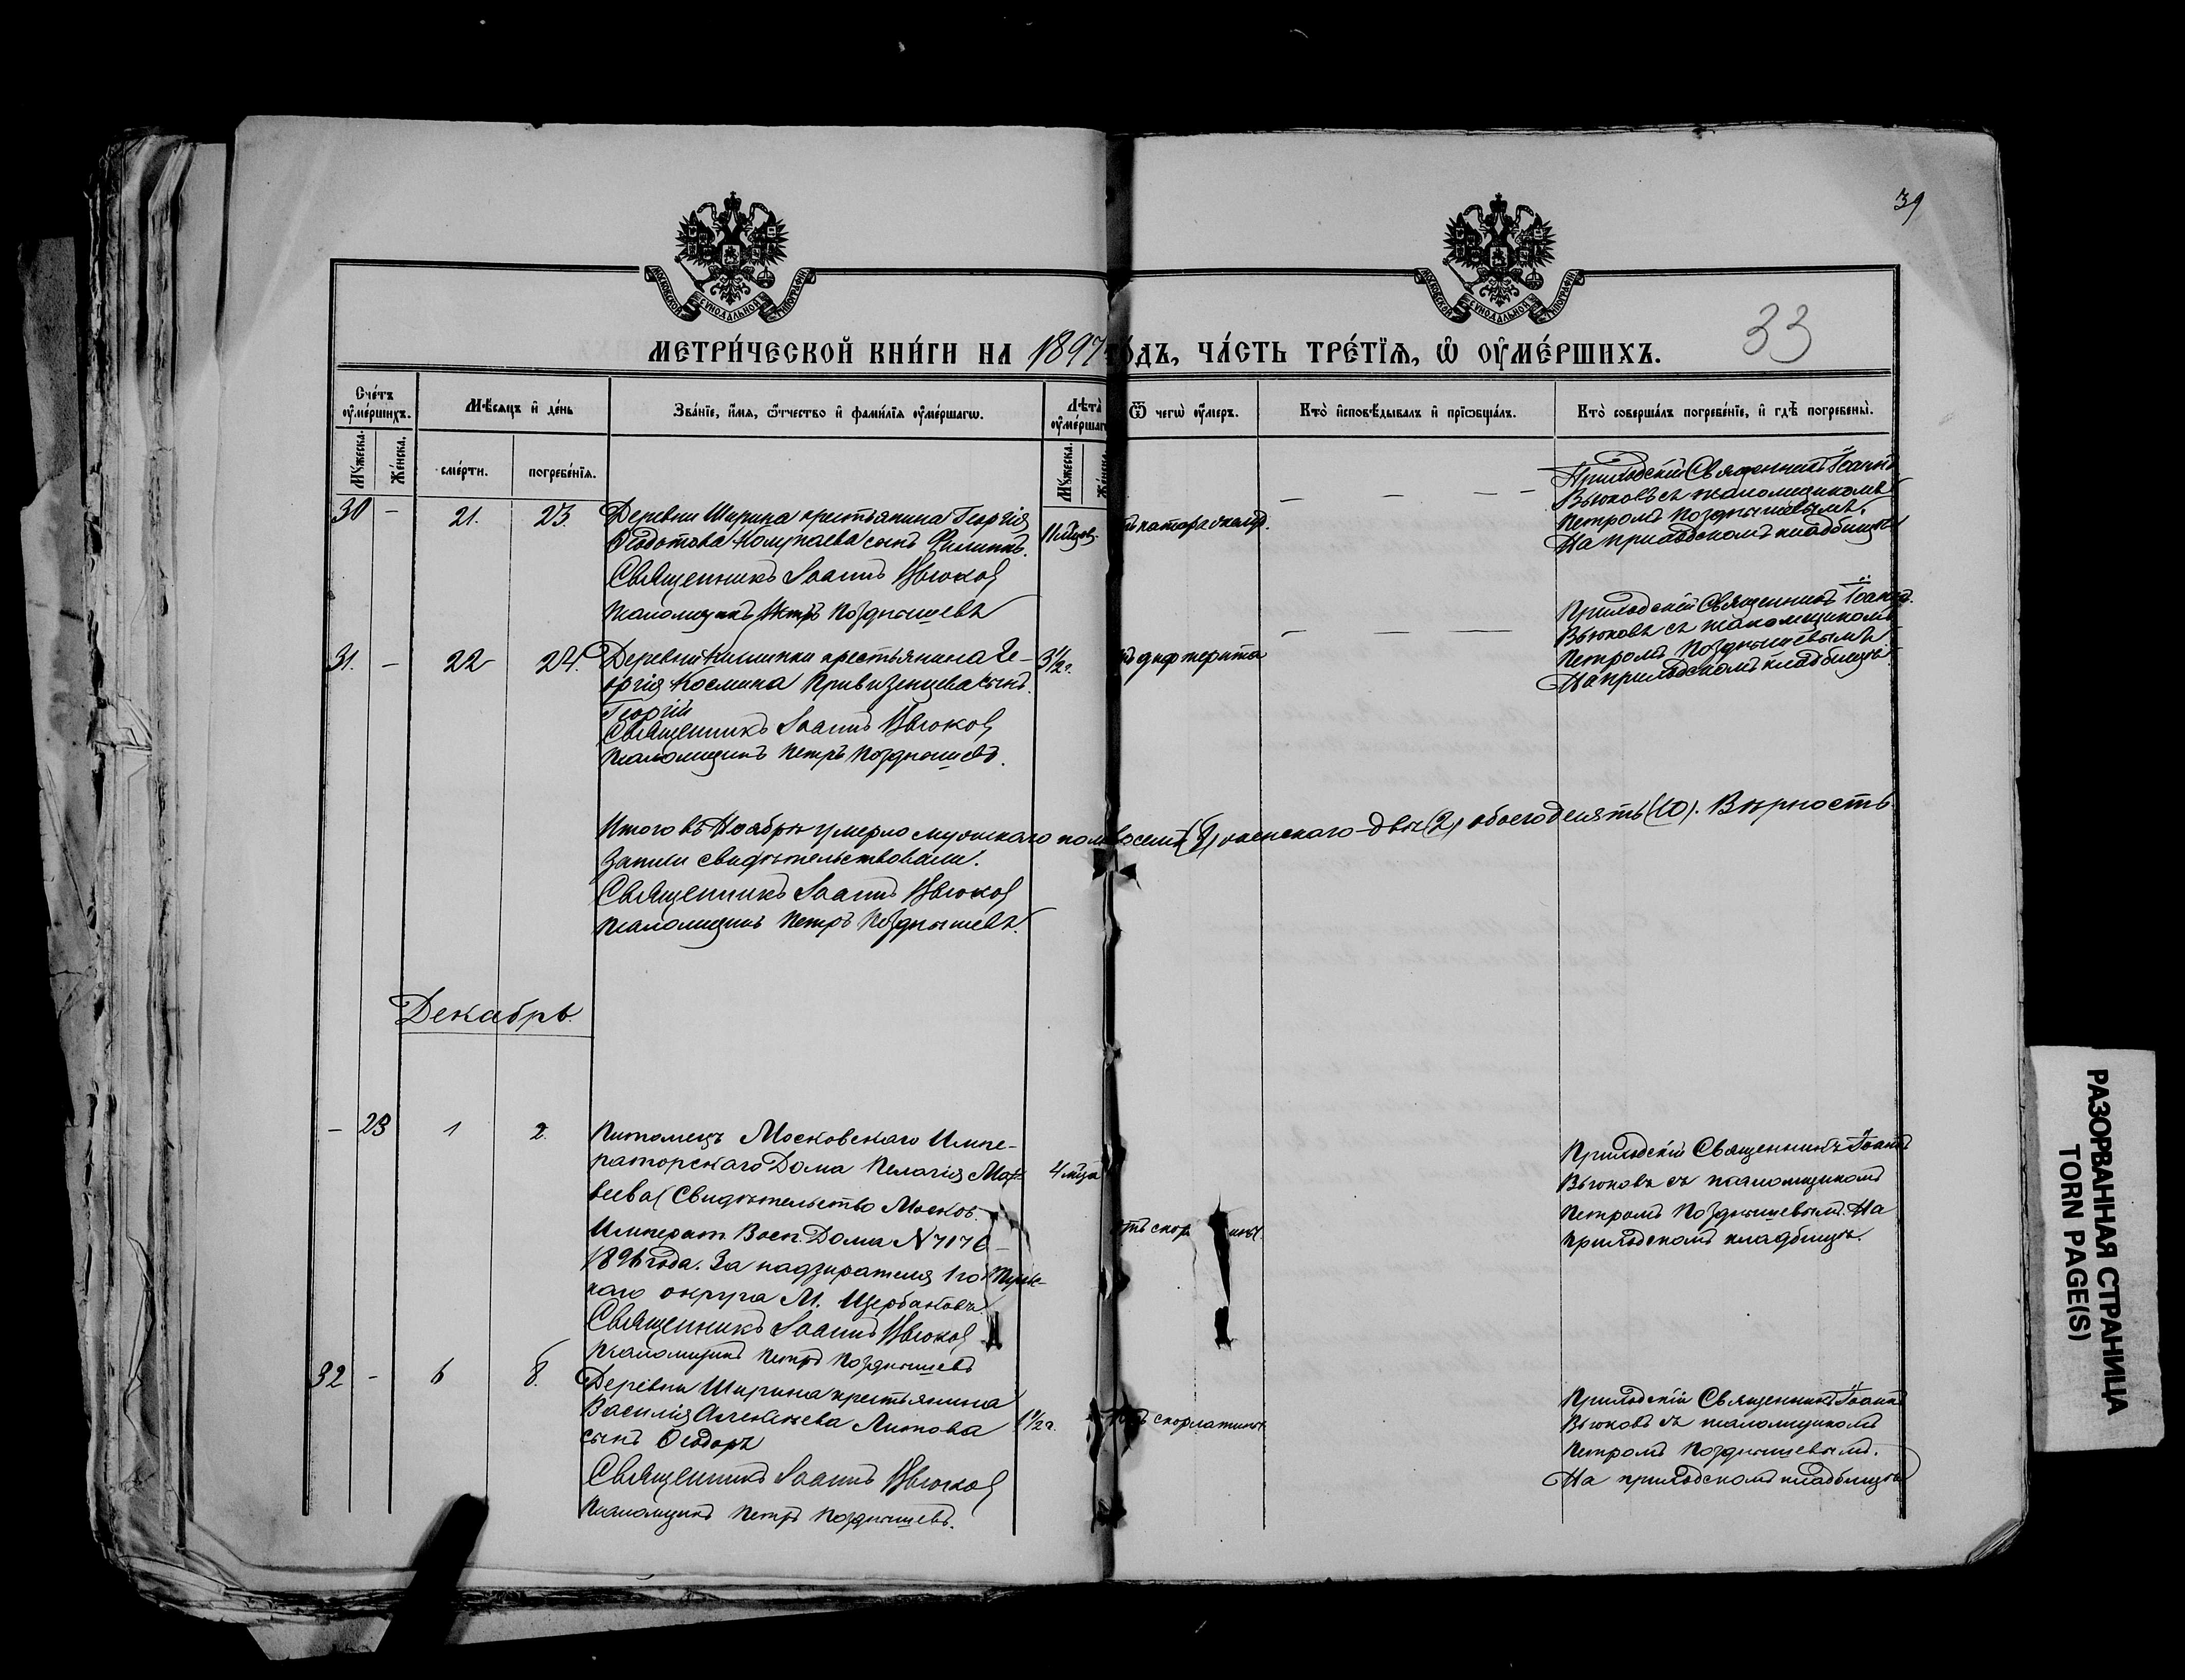 39
33
МЕТРИ́ЧЕСКОЙ КНИ́ГИ НА 1897 го́дъ, ЧА́СТЬ ТРЕ́ТІѦ, Ѡ҆ ОУ҆МЕ́РШИХЪ.
Сче́тъ оу҆ме́ршихъ.
Мѣ́сяцъ и҆ де́нь
Зва́нїе, и҆́мя, ѻ҆́тчество и҆ фами́лїя оу҆ме́ршагѡ.
Лѣта̀ оу҆ме́ршагѡ
Ѿ чегѡ̀ оу҆́меръ.
Кто̀ и҆сповѣ́дывалъ и҆ прїѡбща́лъ.
Кто̀ соверша́лъ погребе́нїе, и҆ гдѣ̀ погребены̀.
Мꙋ́жеска.
Же́нска.
сме́рти.
погребе́нїя.
Мꙋ́жеска.
Же́нска.
30 - 21. 23.
Деревни Ширина крестьянина Георгія
Ѳеодотова сынъ Филиппъ.
Священникъ Іоаннъ Вьюковъ
Псаломщикъ Петръ Позднышевъ
11 мѣсяц.
Приходскій Священникъ Іоаннъ
Вьюковъ съ псаломщикомъ
Петромъ Позднышевымъ.
На приходскомъ кладбищѣ
31. - 22 24.
Деревни крестьянина Ге-
оргія Космина сынъ
Георгій
Священникъ Іоаннъ Вьюковъ
Псаломщикъ Петръ Позднышевъ.
3 1/2 г.
ъ дифтерита
Приходскій Священникъ Іоаннъ
Вьюковъ съ псаломщикомъ
Петромъ Позднышевымъ
На приходскомъ кладбищѣ
Итого въ Ноябрѣ умерло мужскаго пола восемь (8) женскаго двѣ (2) обоего десять (10). Вѣрность
записи свидѣтельствовали:
Священникъ Іоаннъ Вьюковъ
Псаломщикъ Петръ Позднышевъ.
Декабрь.
- 23 1 2.
Питомецъ Московскаго Импе-
раторскаго Дома Пелагія Мат-
веева (Свидѣтельство Москов.
Императ. Восп. Дома N 7176
года. За надзирателя 1 го
каго округа М. Щербаковъ
Священникъ Іоаннъ Вьюковъ
Псаломщикъ Петръ Позднышевъ
4 мѣсяца
отъ скор ины.
Приходскій Священникъ Іоаннъ
Вьюковъ съ псаломщикомъ
Петромъ Позднышевымъ. На
приходскомъ кладбищѣ.
32 - 6 8.
Деревни Ширина крестьянина
Василія Алексѣева
сынъ Ѳеодоръ
Священникъ Іоаннъ Вьюковъ
Псаломщикъ Петръ Позднышевъ.
1 1/2 г.
отъ скорлатины
Приходскій Священникъ Іоаннъ
Вьюковъ съ псаломщикомъ
Петромъ Позднышевымъ.
На приходскомъ кладбищѣ
РАЗОРВАННАЯ СТРАНИЦА
TORN PAGE(S)